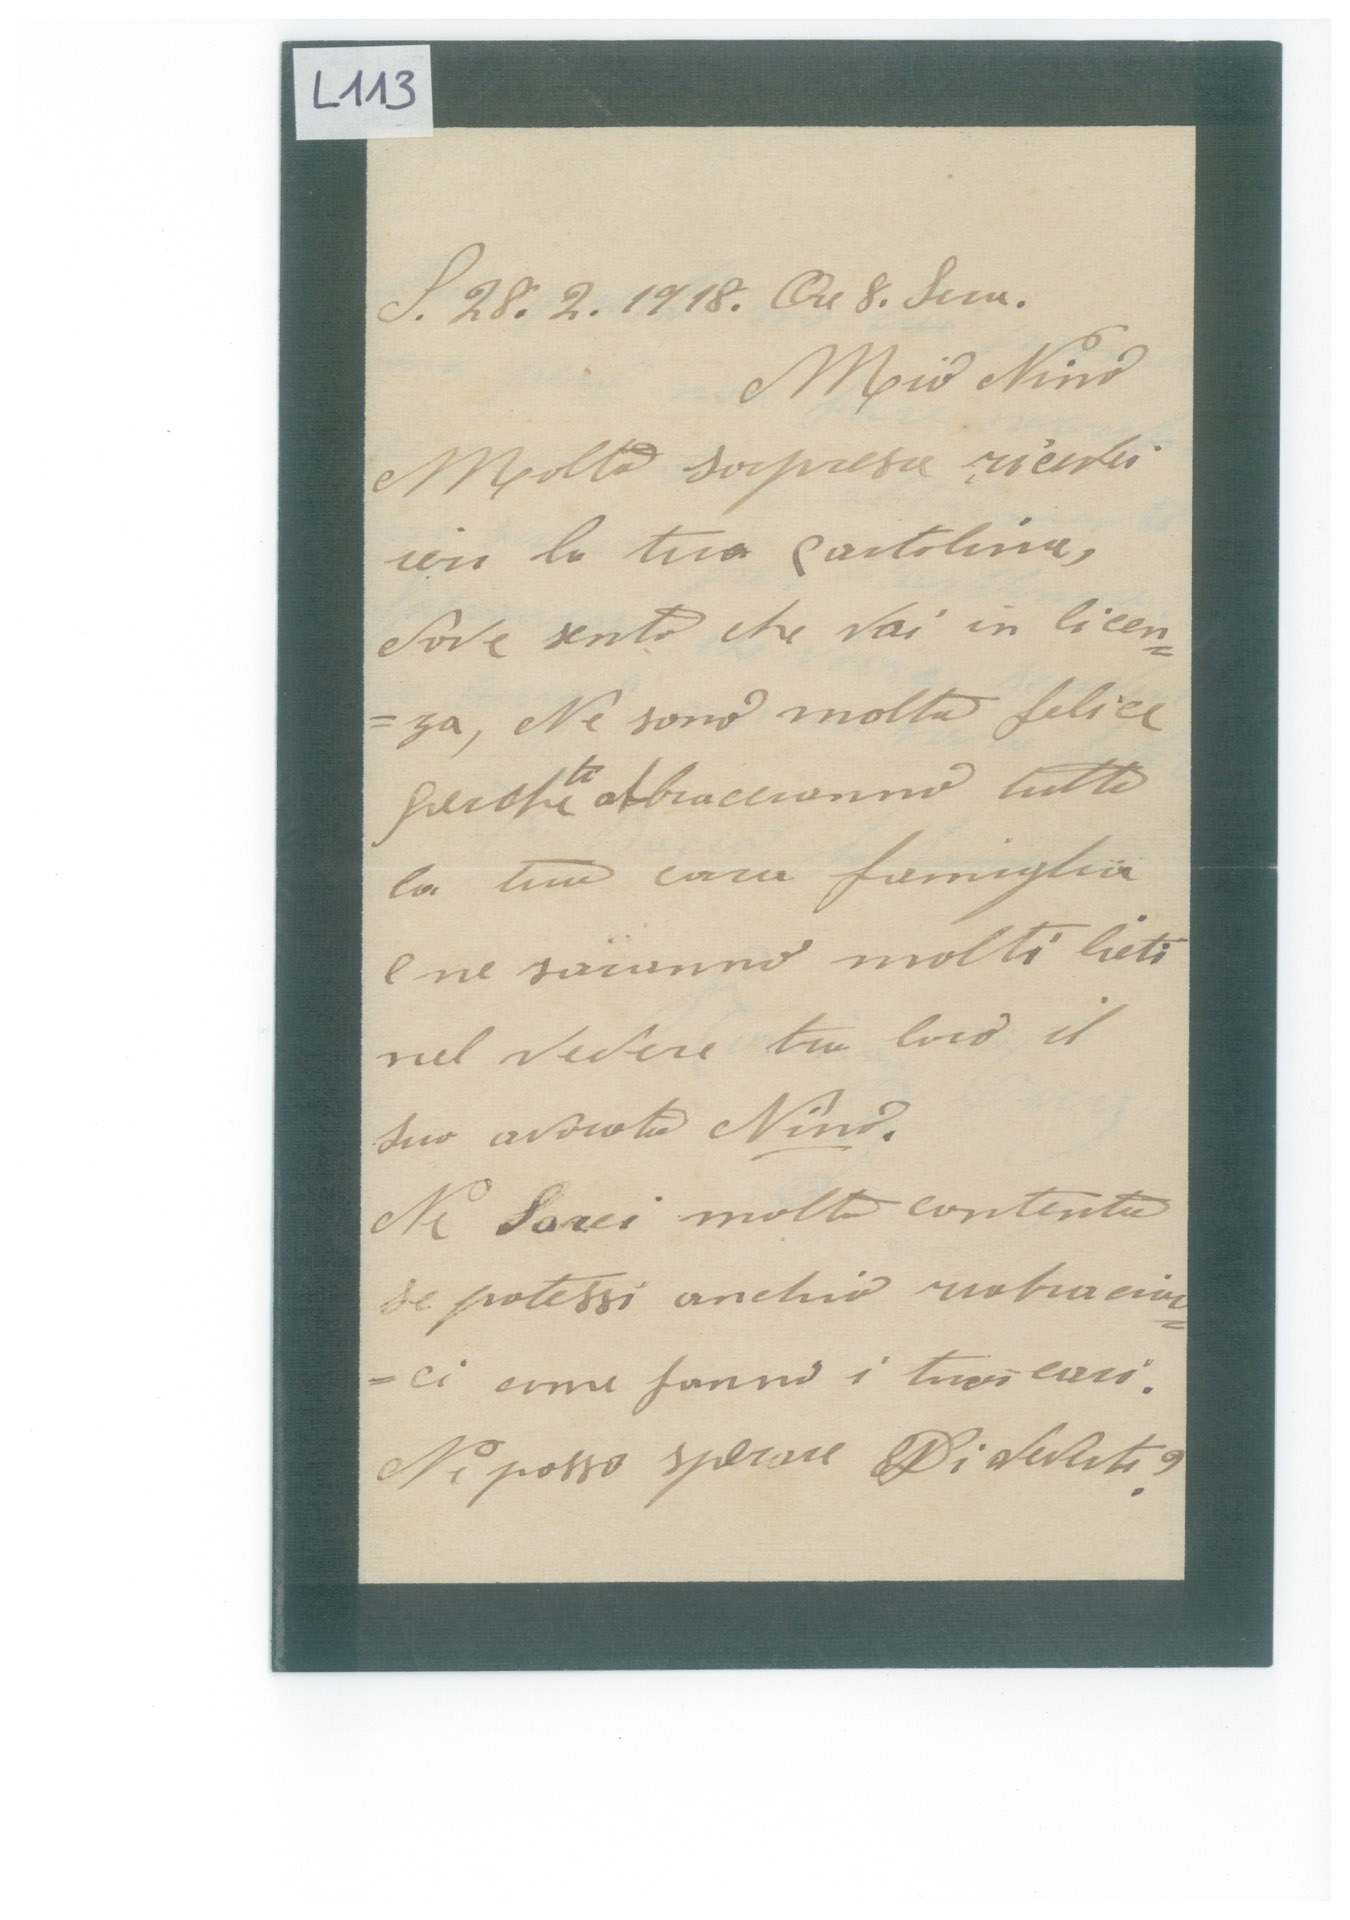 L113
S. 28. 2. 1918. Ore 8. Sera.
Mio Nino
Molto sorpresa ricevei
ieri la tua cartolina,
dove sento che vai in licen=
=za, Ne sono molto felice
perche ti abbraceranno tutta
la tua cara famiglia
e ne saranno molti lieti
nel vedere tra loro il
suo adorato Nino.
Ne Sarei molto contenta
se potessi anchio riabraciar=
=ci come fanno i tuoi cari.
Ne posso sperare Di vederti?